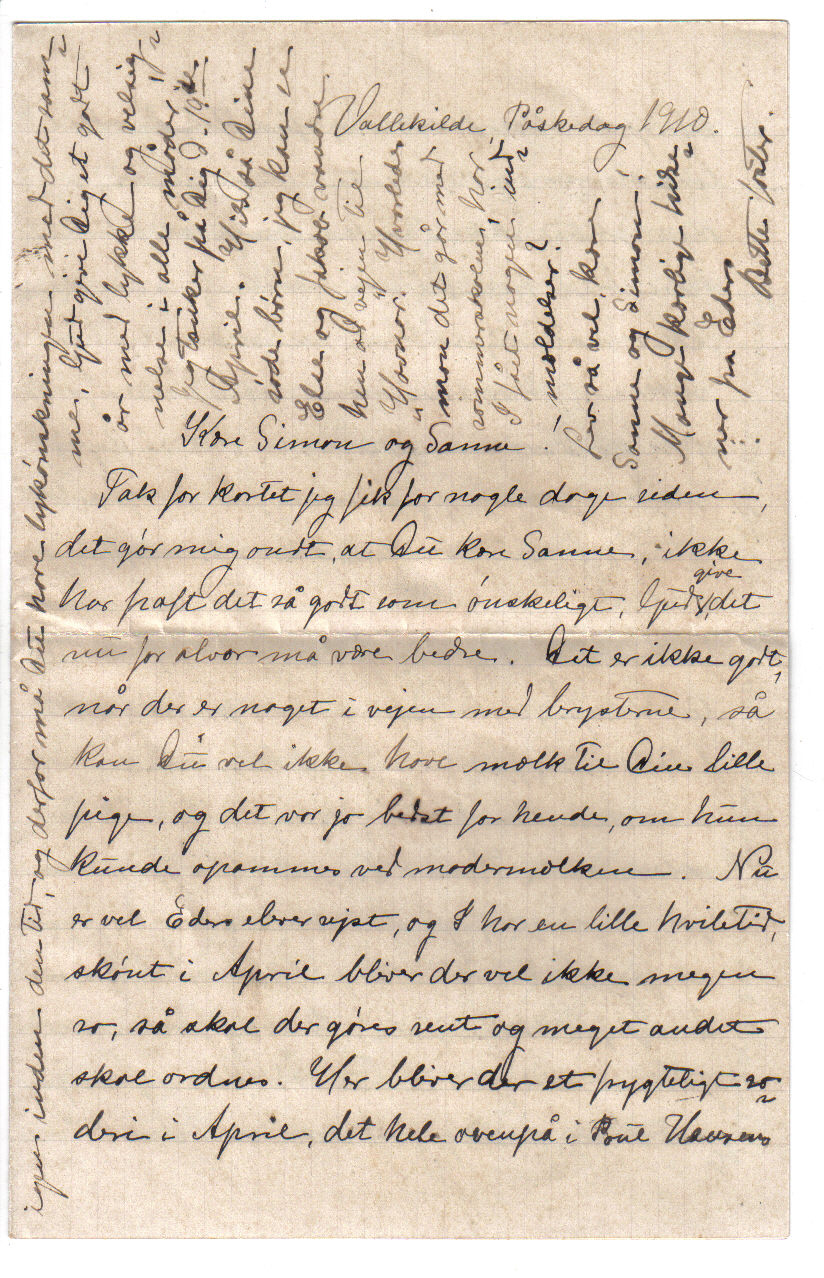 Vallekilde, Påskedag 1910.
Kære Simon og Sanne!
Tak for kortet jeg fik for nogle dage siden,
det gör mig ondt, at Du kære Sanne, ikke
har haft det så godt som önskeligt, Gud give det
nu for alvor må være bedre. Det er ikke godt,
når der er noget i vejen med brysterne, så
kan Du vel ikke have mælk til Din lille
pige, og det var jo bedst for hende, om hun
kunde opammes ved modermælken. Nu
er vel Eders elever rejst, og I har en lille hviletid,
skönt i April bliver der vel ikke megen
ro, så skal der göres rent og meget andet
skal ordnes. Her bliver der et frygteligt ro-
deri i April, det hele ovenpå i Poul Hansens
igen inden den tid, og derfor må Du have lykönskningen med det sam-
me, Gud give Dig et godt
år med lykke og velsig-
nelse i alle måder,
jeg tænker på Dig d. 19de
April. Hils så Dine
söde börn, jeg kan se
Else og Jakob vandre
hen ad vejen til
Hvorledes
mon det går med
sommerskolen, har
I fået nogen ind-
meldelser?
Lev så vel, kære
Sanne og Simon!
Mange kærlige hilse-
ner fra Eders